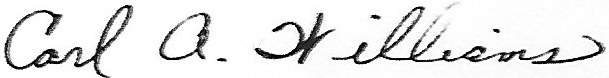 Carl A. Williams